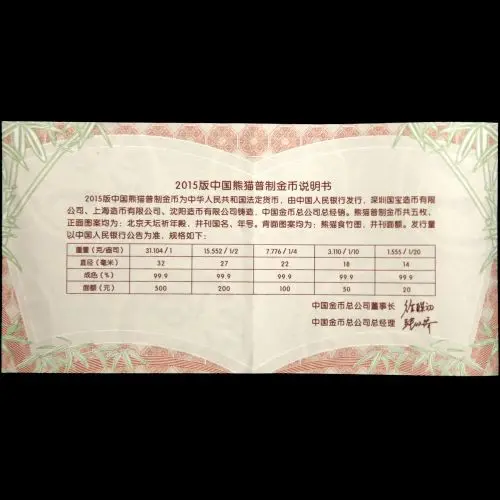 2015版中国熊猫普制金币说明书
2015版中国熊猫普制金币为中华人民共和国法定货币，由中国人民银行发行，深圳国宝造币有限
公司、上海造币有限公司、沈阳造币有限公司铸造，中国金币总公司总经销。熊猫普制金币共五枚，
正面图案均为：北京天坛祈年殿，并刊国名、年号。背面图案均为：熊猫食竹图，并刊面额。发行量
以中国人民银行公告为准，规格如下：
重量（克/盎司） 31.104/1 15.552/1/2 7.776/1/4 3.110/1/10 1.555/1/20
直径（毫米） 32 27 22 18 14
成色（%） 99.9 99.9 99.9 99.9 99.9
面额（元） 500 200 100 50 20
中国金币总公司董事长
中国金币总公司总经理